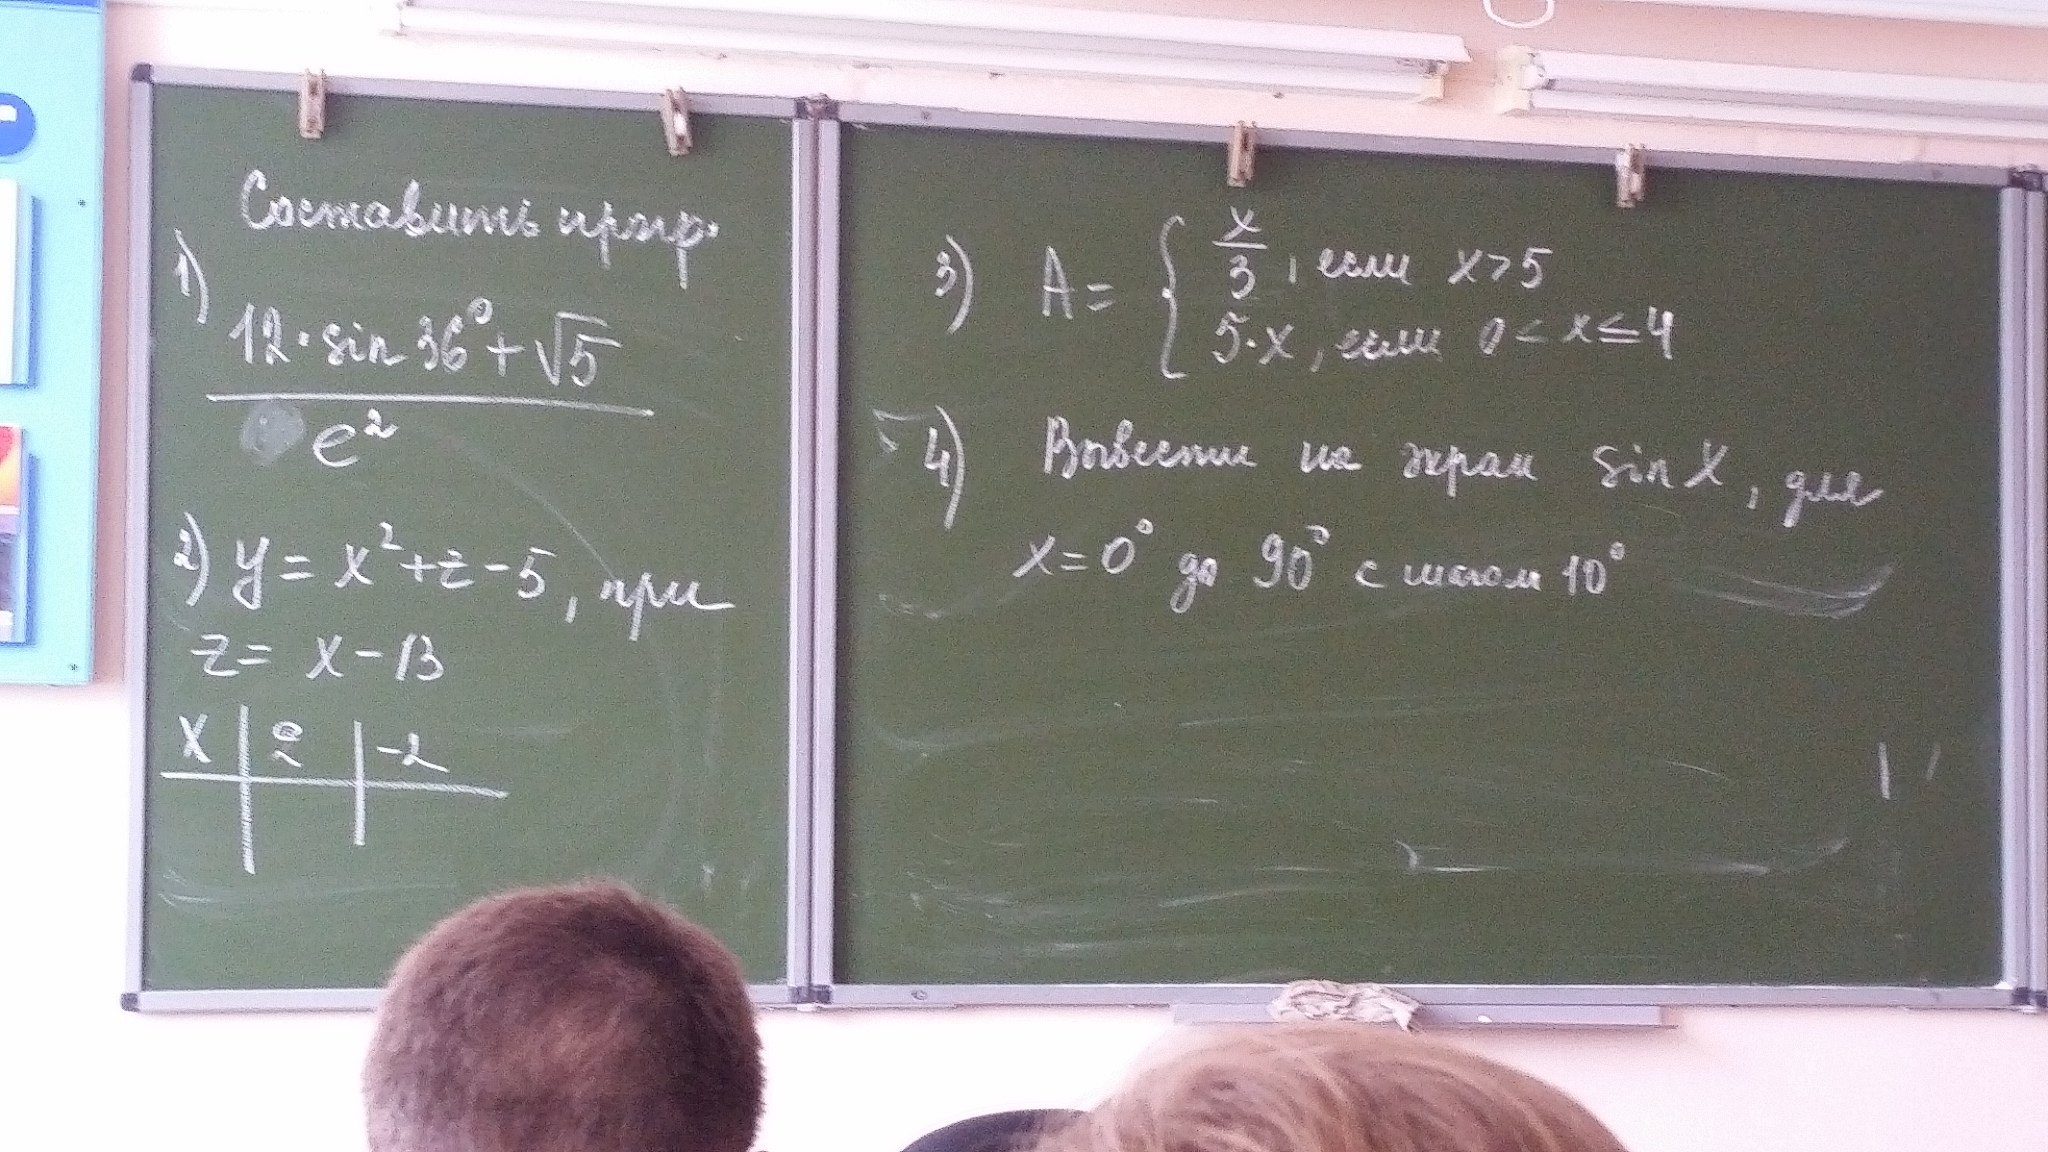 Составить прогр.
1) (12·sin 36° + √5) / e²
2) y = x² + z - 5, при
z = x - 13
x | 2 | -2
3) A = { x/3, если x > 5
5·x, если 0 < x ≤ 4
4) Вывести на экран sin X, для
x = 0° до 90° с шагом 10°